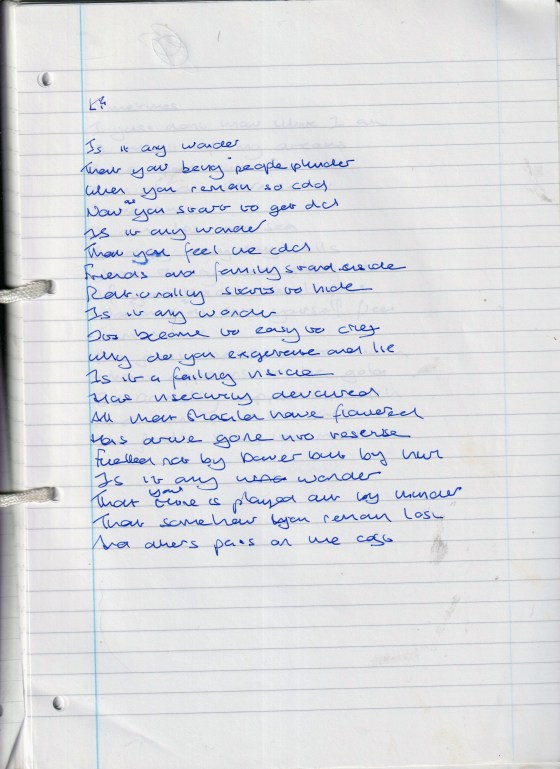 Is it any wonder
That your being people plunder
When you remain so cold
Now as you start to get old
Is it any wonder
That you feel the cold
Friends and family stand aside
Rationality starts to hide
Is it any wonder
Its became to easy to cry
Why do you exgerate and lie
Is it a failing inside
Has insecurity devoured
All that should have flowered
Has drive gone into reverse
Fuelled not by but by hurt
Is it any wonder
That your is played out by
That somehow you remain lost
And others pass on the cost